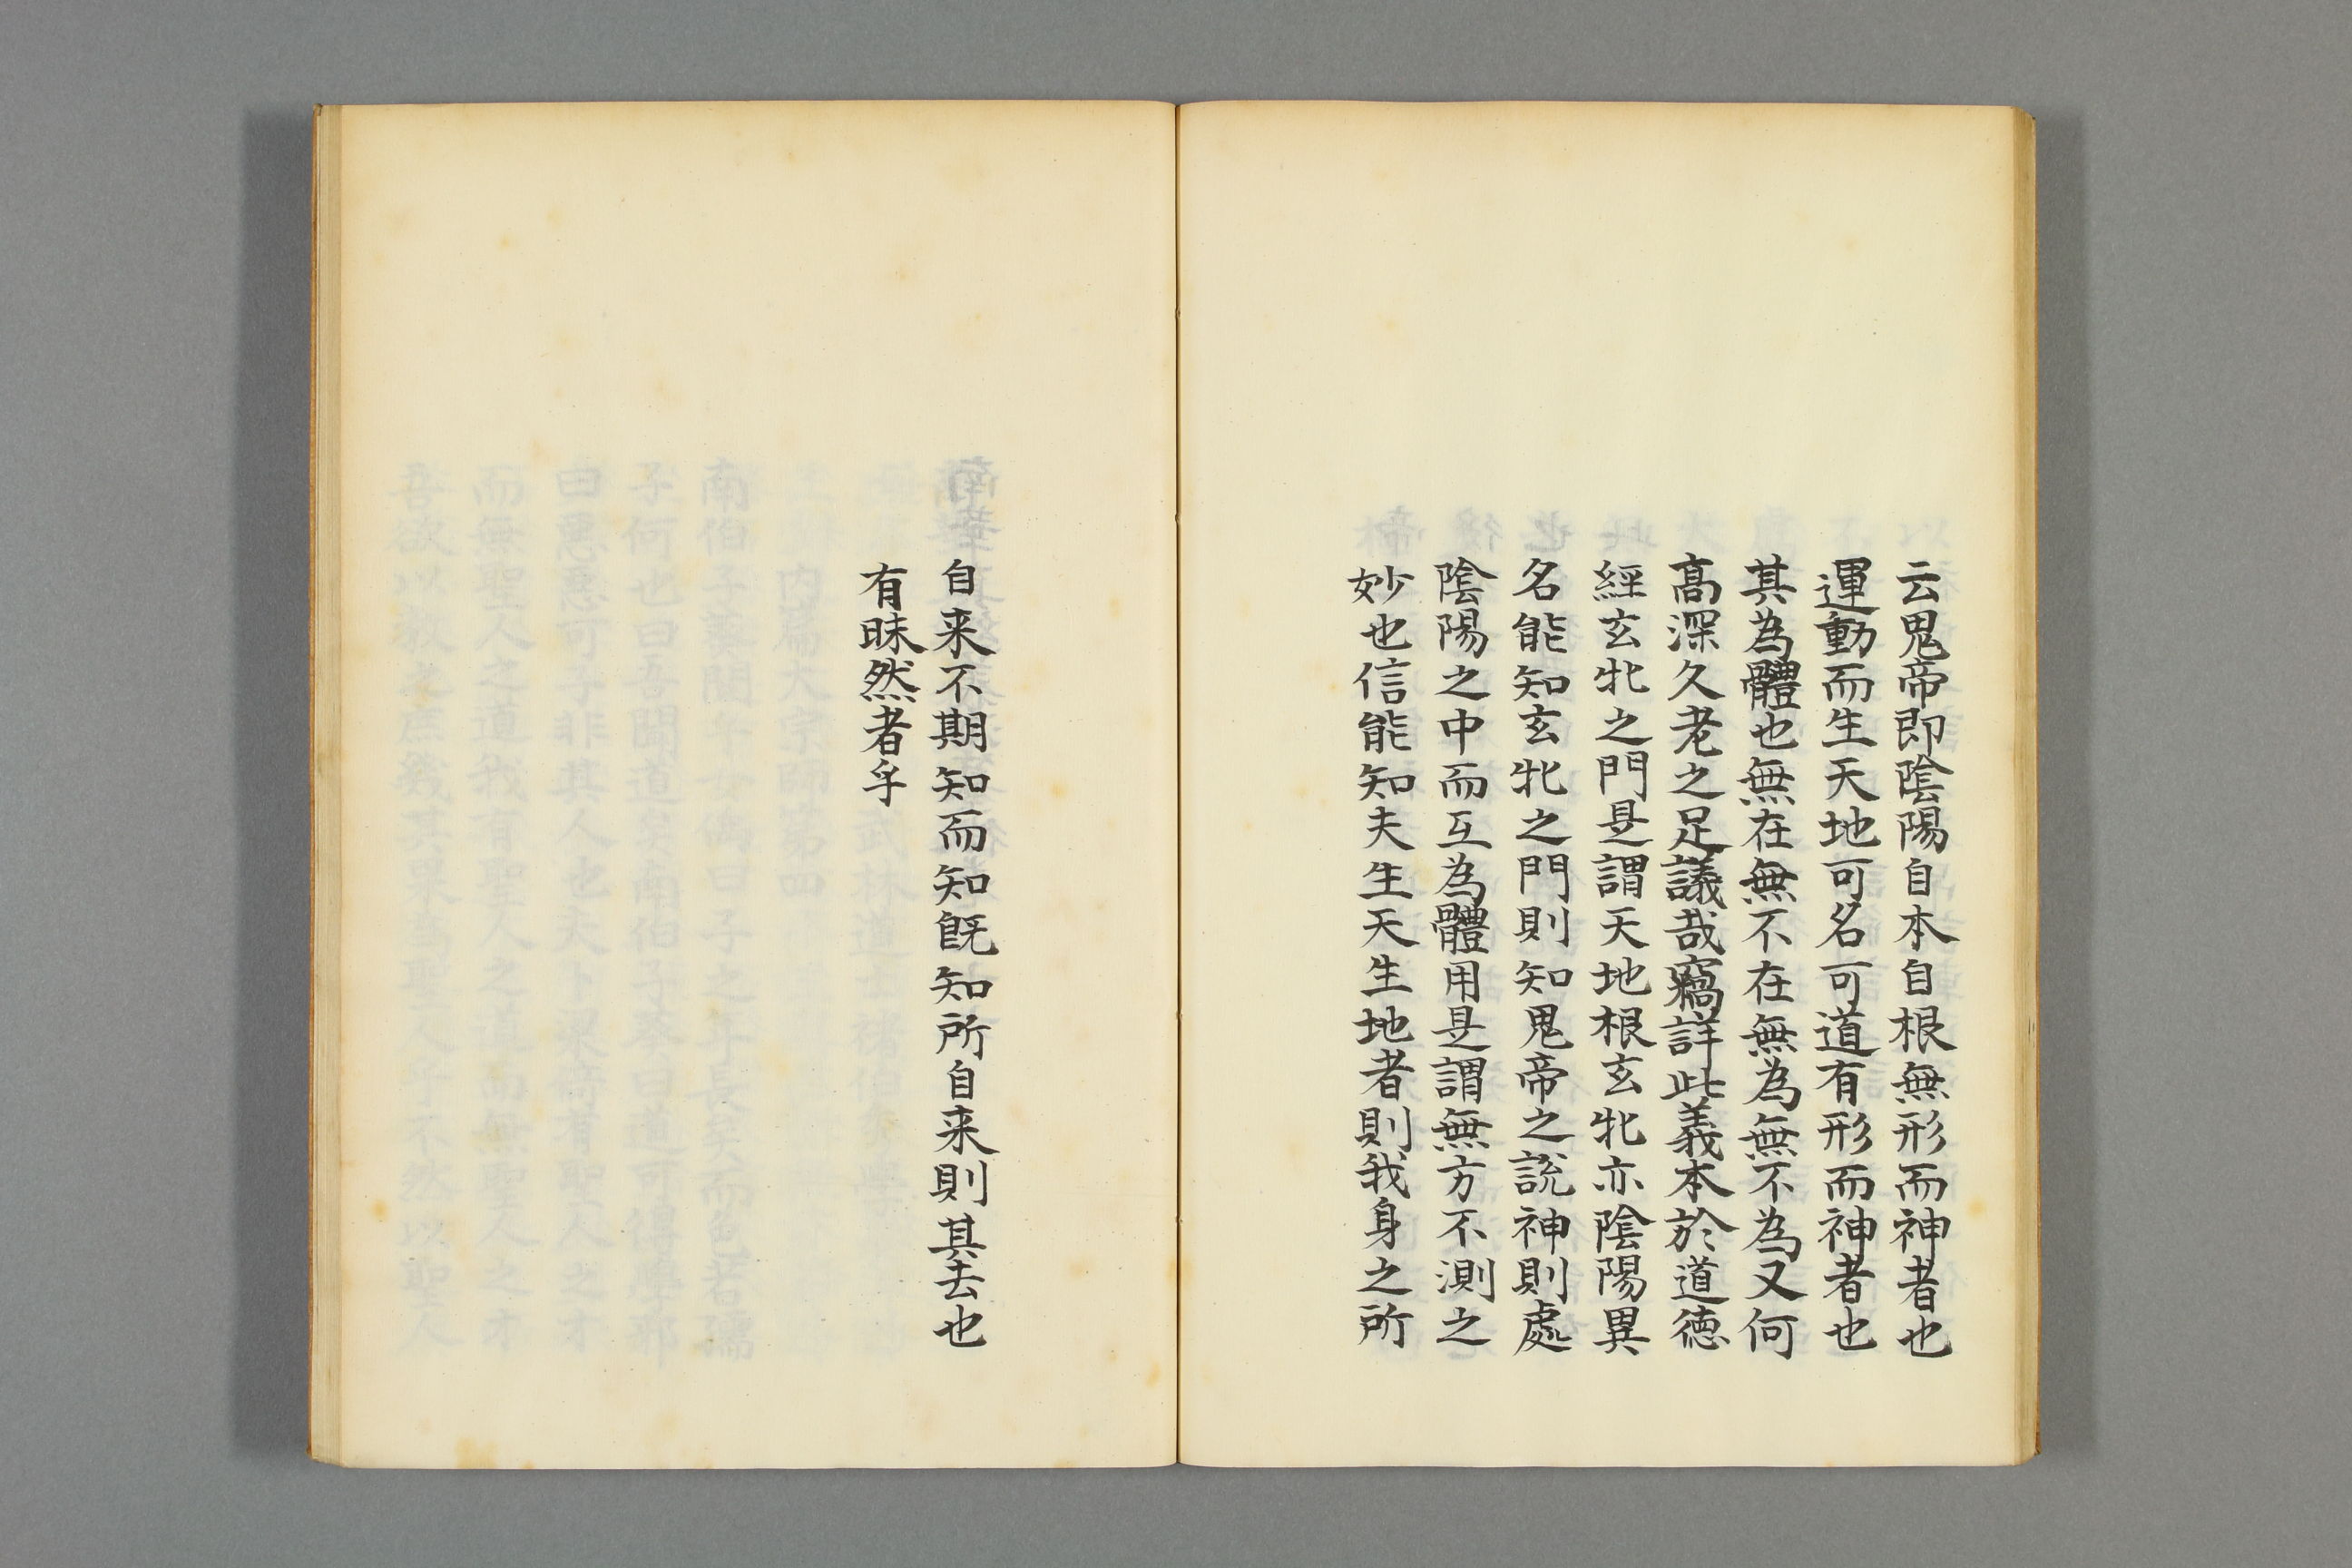 云鬼帝即陰陽自本自根無形而神者也
運動而生天地可名可道有形而神者也
其為體也無在無不在無為無不為又何
髙深久老之足議哉竊詳此義本於道德
經玄牝之門是謂天地根玄牝亦陰陽異
名能知玄牝之門則知鬼帝之說神則處
陰陽之中而互為體用是謂無方不測之
妙也信能知夫生天生地者則我身之所
自来不期知而知既知所自来則其去也
有昧然者乎